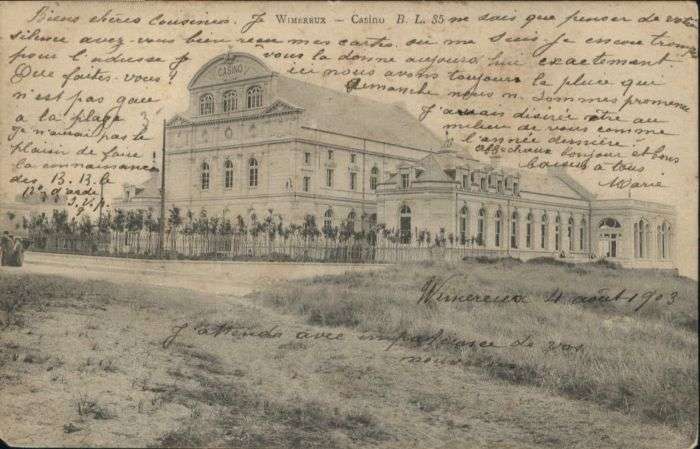 WIMEREUX — Casino B. L. 35
Biens chères Cousines. Je ne sais que penser de votre
silence avez vous bien reçu mes cartes. ou me suis je encore tromp
pour l'adresse Je vous la donne aujourd'hui exactement
Que faites-vous? ici nous avons toujours la pluie que
n'est pas gaie Dimanche nous n. sommes promené
a la plage J'aurais désiré être au
Je n'aurai pas le milieu de vous comme
plaisir de faire l'année dernière
la connaissance affectueux bonjour et bons
des B. B. la baisers à tous
Marie
CASINO
Wimereux 4 août 1903
J'attends avec impatience de vos
nouvelles